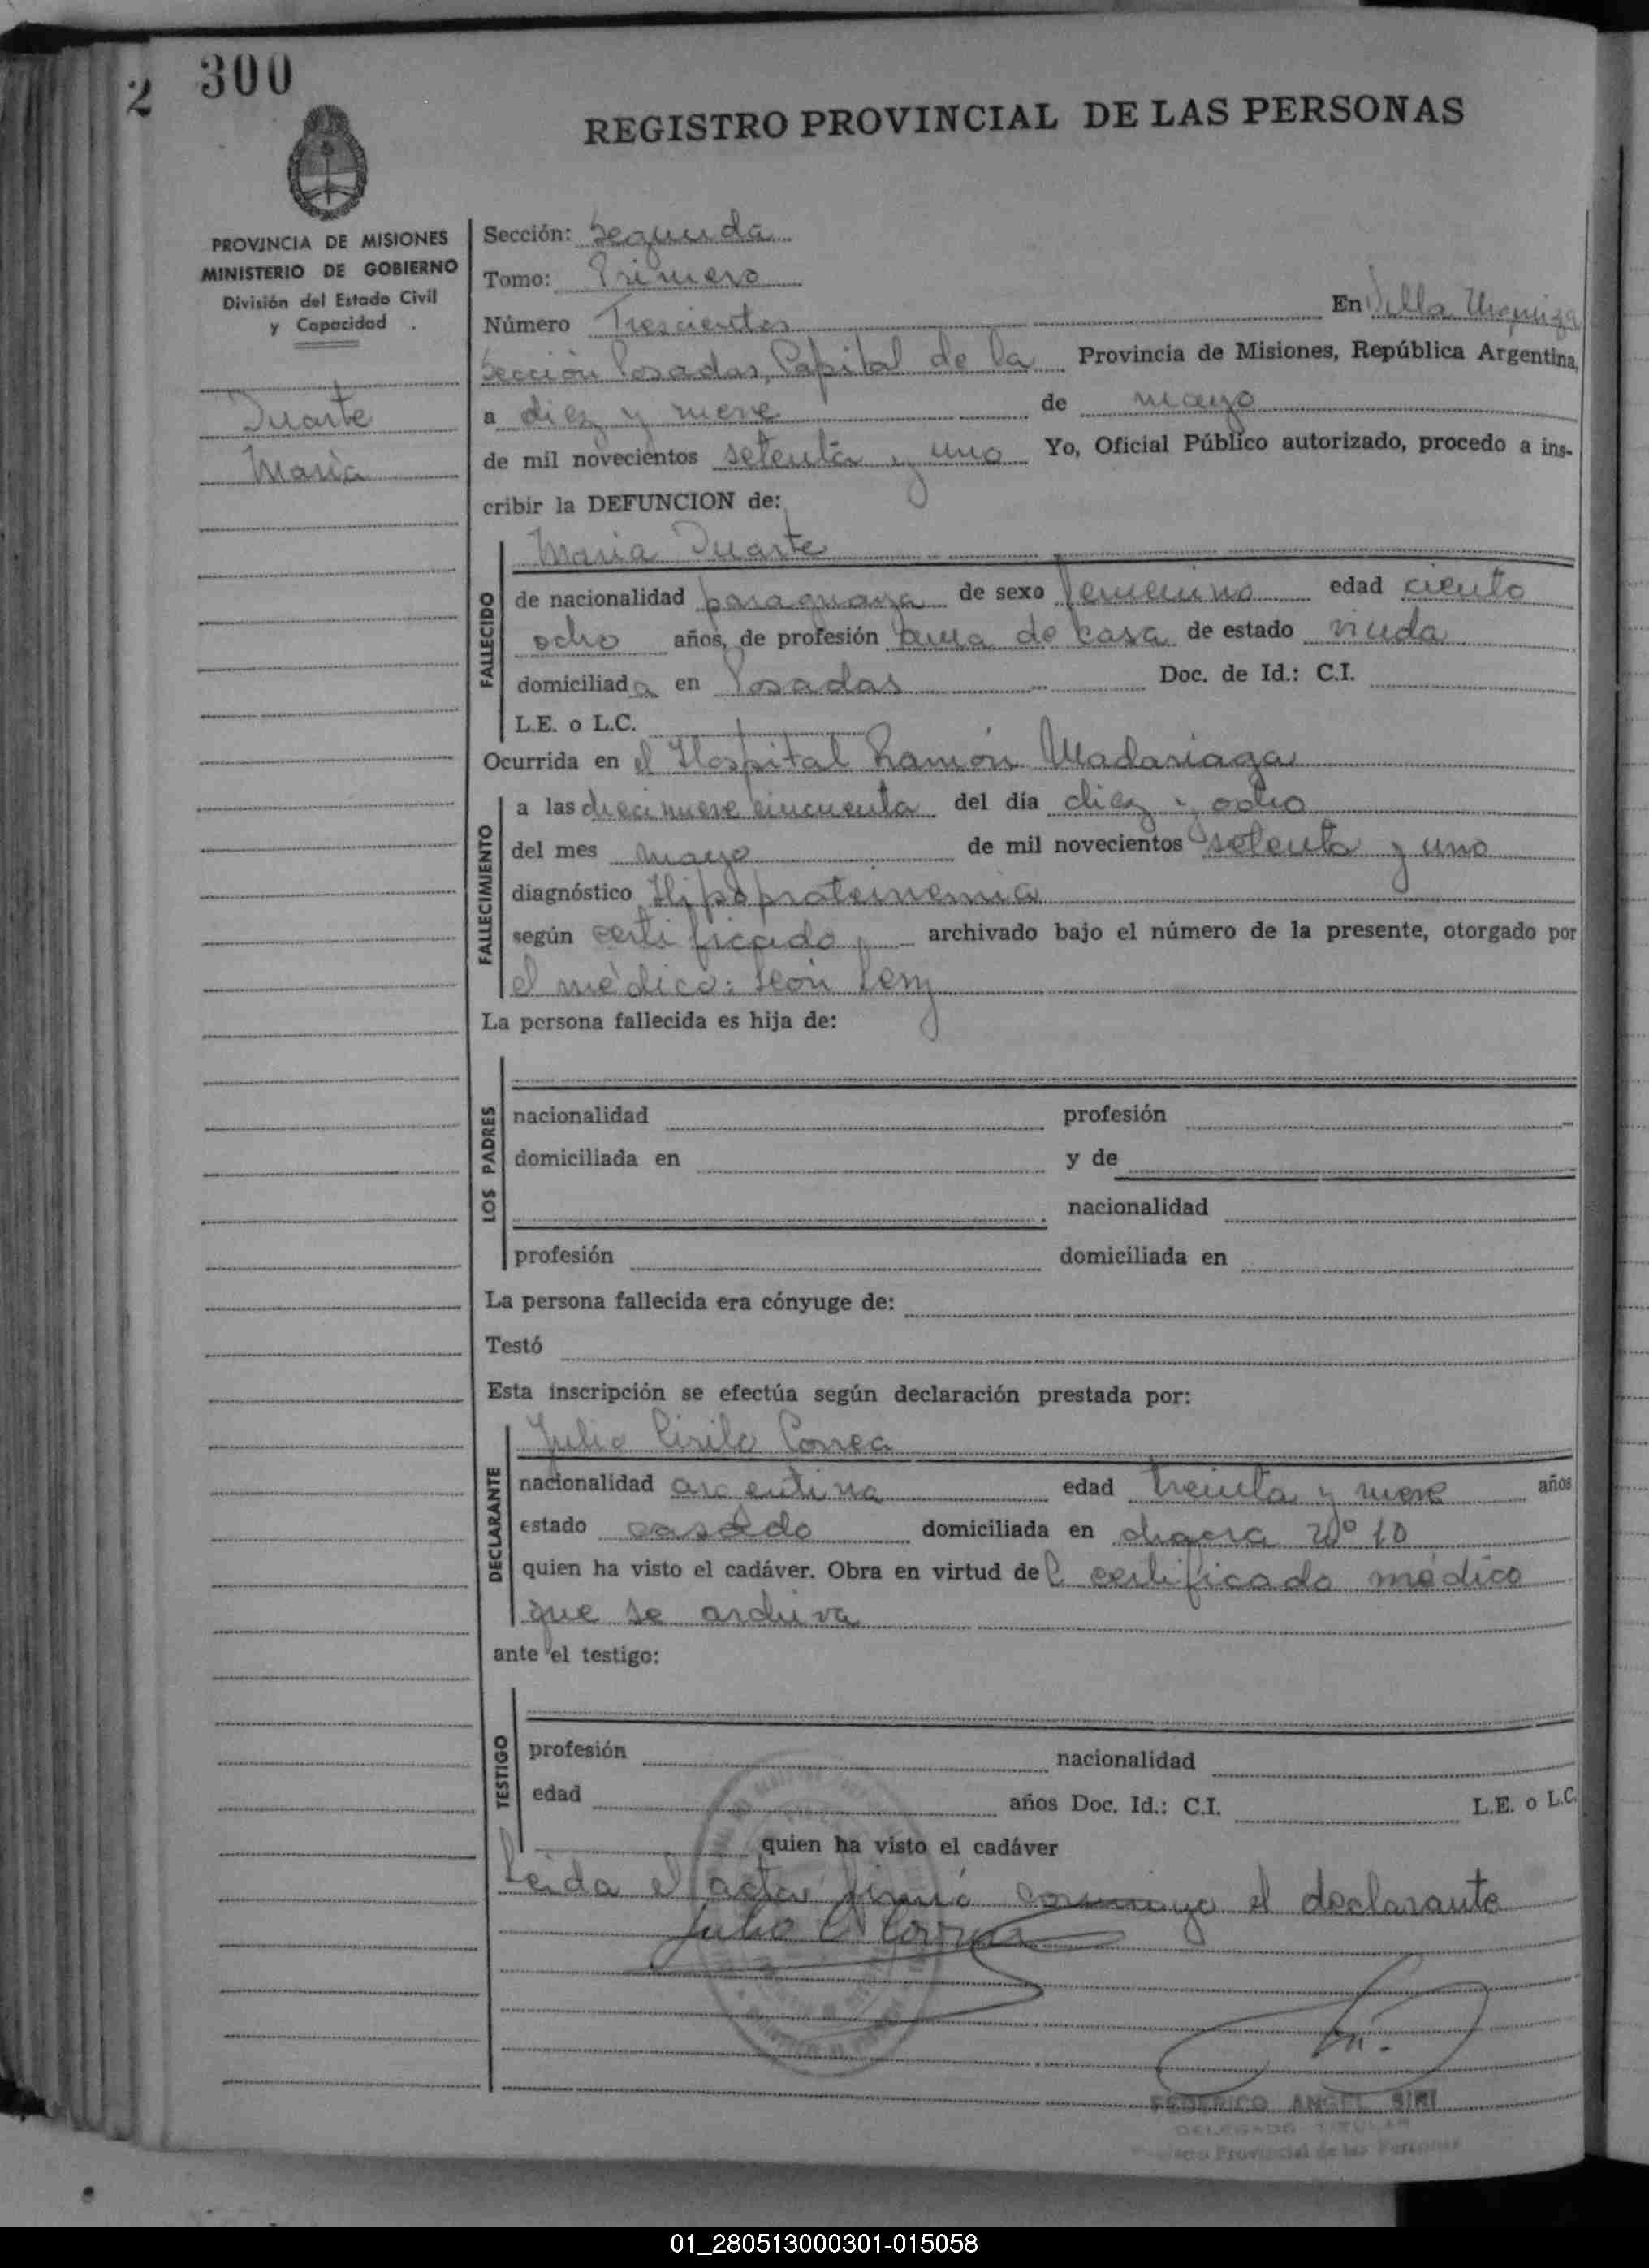 2 300
REGISTRO PROVINCIAL DE LAS PERSONAS
PROVINCIA DE MISIONES
MINISTERIO DE GOBIERNO
División del Estado Civil
y Capacidad
Duarte
Maria
Sección: Segunda
Tomo: Primero
Número Trescientos En Villa Urquiza
Sección Posadas, Capital de la Provincia de Misiones, República Argentina,
a diez y nueve de mayo
de mil novecientos setenta y uno Yo, Oficial Público autorizado, procedo a ins-
cribir la DEFUNCION de:
FALLECIDO
Maria Duarte
de nacionalidad paraguaya de sexo femenino edad ciento
ocho años, de profesión ama de casa de estado viuda
domiciliada en Posadas Doc. de Id.: C.I.
L.E. o L.C.
Ocurrida en el Hospital Ramón Madariaga
FALLECIMIENTO
a las diecinueve cincuenta del día diez y ocho
del mes mayo de mil novecientos setenta y uno
diagnóstico Hipoproteinemia
según certificado archivado bajo el número de la presente, otorgado por
el médico: León
La persona fallecida es hija de:
LOS PADRES
nacionalidad profesión
domiciliada en y de
nacionalidad
profesión domiciliada en
La persona fallecida era cónyuge de:
Testó
Esta inscripción se efectúa según declaración prestada por:
DECLARANTE
Julio Cirilo Correa
nacionalidad argentina edad treinta y nueve años
estado casado domiciliada en chacra Nº 10
quien ha visto el cadáver. Obra en virtud del certificado médico
que se archiva
ante el testigo:
TESTIGO
profesión nacionalidad
edad años Doc. Id.: C.I. L.E. o L.C.
quien ha visto el cadáver
Leida el acta firmó conmigo el declarante
Julio C Correa
FEDERICO ANGEL SIRI
DELEGADO TITULAR
Registro Provincial de las Personas
01_280513000301-015058